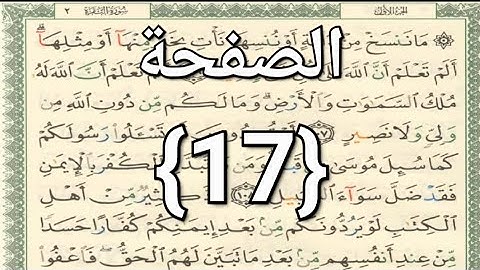 الجزء الأول سورة البقرة ٢
مَا نَنسَخْ مِنْ ءَايَةٍ أَوْ نُنسِهَا نَأْتِ بِخَيْرٍ مِّنْهَآ أَوْ مِثْلِهَآ
الصفحة
أَلَمْ تَعْلَمْ أَنَّ ٱللَّهَ تَعْلَمْ أَنَّ ٱللَّهَ لَهُۥ
مُلْكُ ٱلسَّمَٰوَٰتِ وَٱلْأَرْضِ ۗ وَمَا لَكُم مِّن دُونِ ٱللَّهِ مِن
وَلِىٍّ وَلَا نَصِيرٍ تَسْـَٔلُوا۟ رَسُولَكُمْ
{17}
كَمَا سُئِلَ مُوسَىٰ ٱلْكُفْرَ بِٱلْإِيمَٰنِ
فَقَدْ ضَلَّ سَوَآءَ ٱلسَّبِيلِ كَثِيرٌ مِّنْ أَهْلِ
ٱلْكِتَٰبِ لَوْ يَرُدُّونَكُم مِّنۢ بَعْدِ إِيمَٰنِكُمْ كُفَّارًا حَسَدًا
مِّنْ عِندِ أَنفُسِهِم مِّنۢ بَعْدِ مَا تَبَيَّنَ لَهُمُ ٱلْحَقُّ ۖ فَٱعْفُوا۟